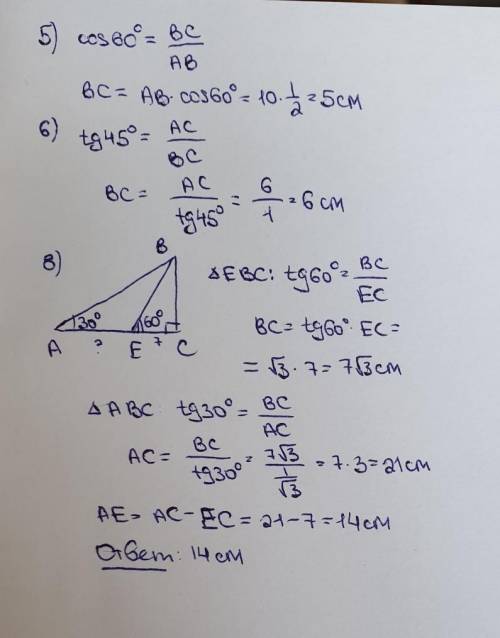 5) cos60° = BC/AB
BC = AB · cos60° = 10 · 1/2 = 5см
6) tg45° = AC/BC
BC = AC/tg45° = 6/1 = 6 см
8)
B
30°
60°
A
?
E
7
C
△EBC: tg60° = BC/EC
BC = tg60° · EC =
= √3 · 7 = 7√3 см
△ABC tg30° = BC/AC
AC = BC/tg30° = 7√3/(1/√3) = 7·3 = 21см
AE = AC - EC = 21 - 7 = 14см
Ответ: 14 см